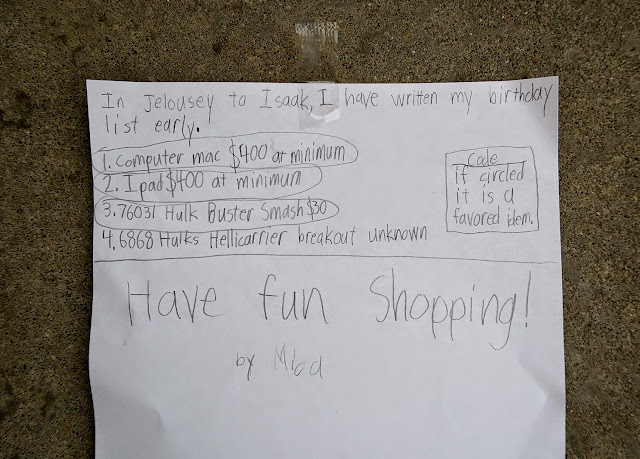 In Jelousey to Isaak, I have written my birthday
list early.
1. Computer mac $400 at minimum
2. Ipad $400 at minimum
3. 76031 Hulk Buster Smash $30
4. 6868 Hulks Hellicarrier breakout unknown
Code
if circled
it is a
favored idem.
Have fun Shopping!
by